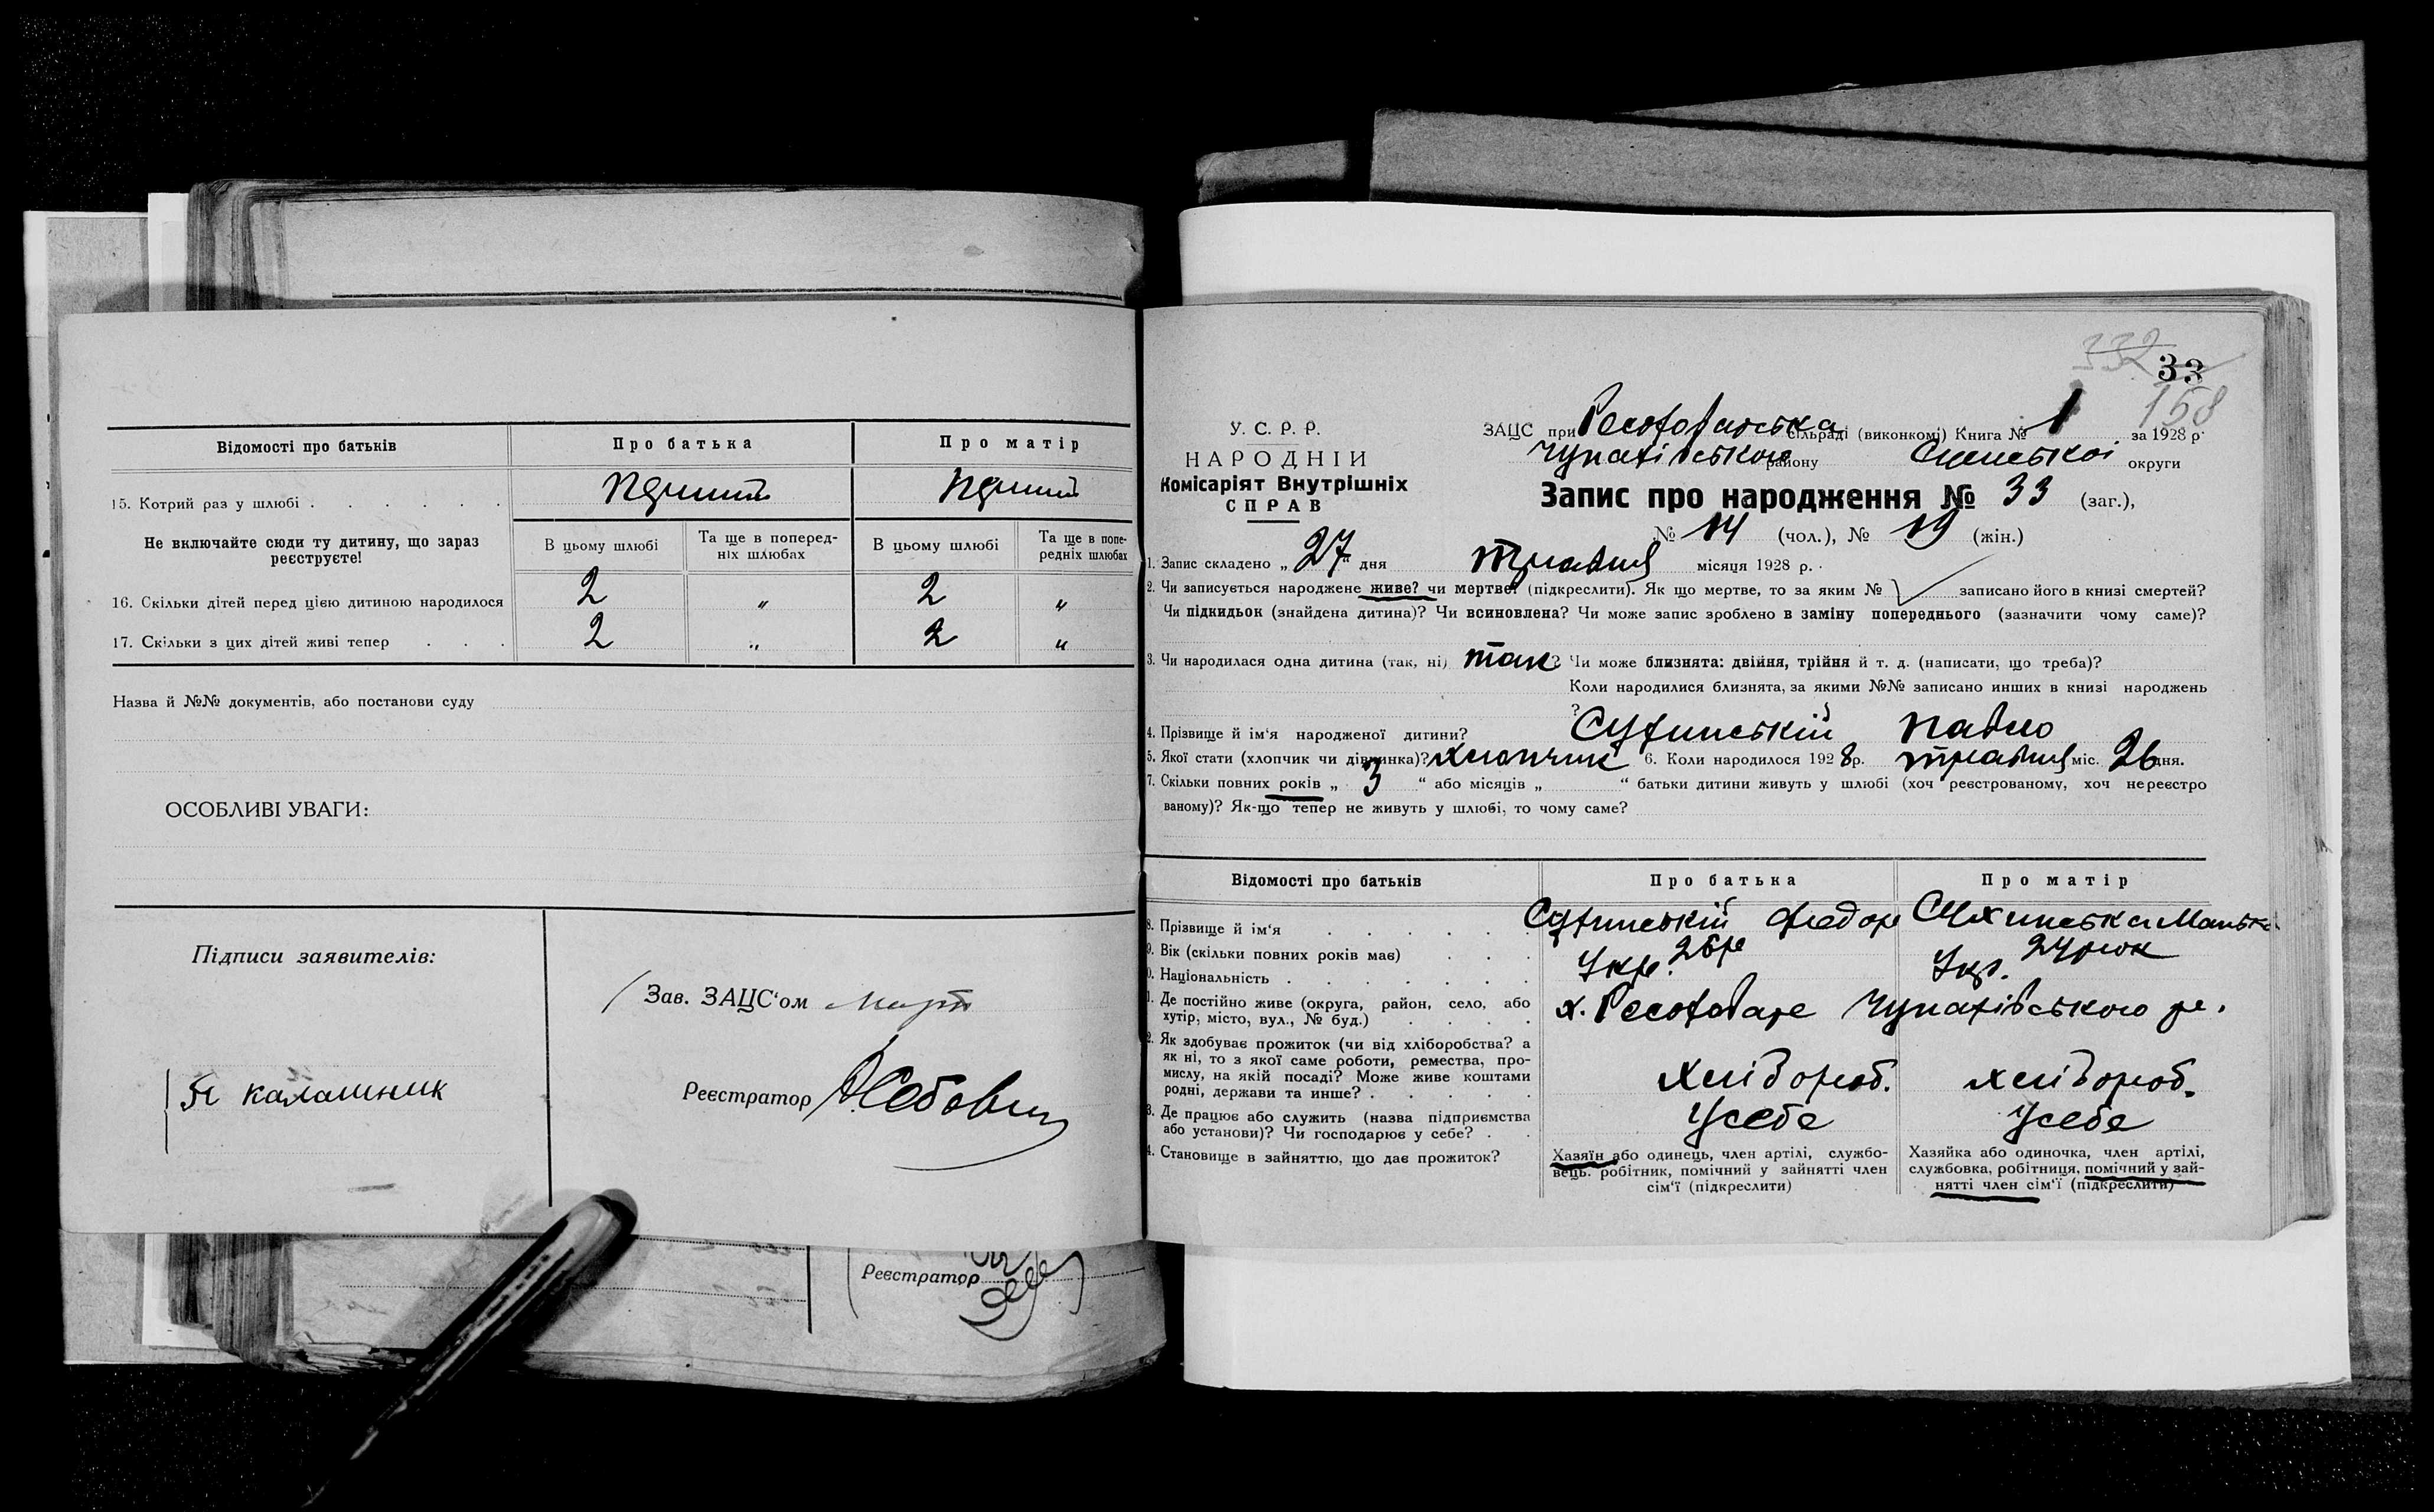 Відомості про батьків
Про батька
Про матір
15. Котрий раз у шлюбі
Перший
Перший
Не включайте сюди ту дитину, що зараз
реєструєте!
В цьому шлюбі
Та ще в поперед-
ніх шлюбах
В цьому шлюбі
Та ще в попе-
редніх шлюбах
16. Скільки дітей перед цією дитиною народилося
2 " 2 "
17. Скільки з цих дітей живі тепер
2 " 2 "
Назва й №№ документів, або постанови суду
ОСОБЛИВІ УВАГИ:
Підписи заявителів:
калашник
Зав. ЗАЦС'ом
Реєстратор
Реєстратор
332
33
158
У. С. Р. Р.
НАРОДНІЙ
Комісаріят Внутрішніх
СПРАВ
ЗАЦС при сільраді (виконкомі) Книга № 1 за 1928 р.
Чупахівського району Сумської округи
Запис про народження № 33 (заг.),
№ 14 (чол.), № 19 (жін.)
1. Запис складено „ 27 " дня травня місяця 1928 р.
2. Чи записується народжене живе? чи мертве? (підкреслити). Як що мертве, то за яким № записано його в книзі смертей?
Чи підкидьок (знайдена дитина)? Чи всиновлена? Чи може запис зроблено в заміну попереднього (зазначити чому саме)?
3. Чи народилася одна дитина (так, ні) так? Чи може близнята: двійня, трійня й т. д. (написати, що треба)?
Коли народилися близнята, за якими №№ записано инших в книзі народжень
?
4. Прізвище й ім'я народженої дитини? Сухинській Павло
5. Якої стати (хлопчик чи дівчинка)? хлопчик 6. Коли народилося 1928 р. травня міс. 26 дня.
7. Скільки повних років „ 3 " або місяців „ " батьки дитини живуть у шлюбі (хоч реєстрованому, хоч нереєстро
ваному)? Як-що тепер не живуть у шлюбі, то чому саме?
Відомості про батьків
Про батька
Про матір
8. Прізвище й ім'я
Сухинській Федор
Сухинська
9. Вік (скільки повних років має)
26р
24 рок
0. Національність
Укр.
Укр.
1. Де постійно живе (округа, район, село, або
хутір, місто, вул., № буд.)
х. Чупахівського р.
2. Як здобуває прожиток (чи від хліборобства? а
як ні, то з якої саме роботи, ремества, про-
мислу, на якій посаді? Може живе коштами
родні, держави та инше?
хлібороб.
хлібороб.
3. Де працює або служить (назва підприємства
або установи)? Чи господарює у себе?
Усебе
Усебе
4. Становище в зайняттю, що дає прожиток?
Хазяїн або одинець, член артілі, службо-
вець, робітник, помічний у зайнятті член
сім'ї (підкреслити)
Хазяйка або одиночка, член артілі,
службовка, робітниця, помічний у зай-
нятті член сім'ї (підкреслити)